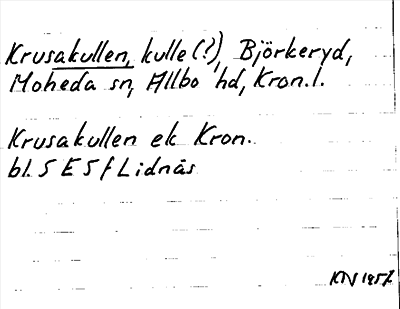 Krusakullen, kulle (?), Björkeryd,
Moheda sn, Allbo hd, Kron. l.
Krusakullen ek Kron.
bl. 5 E 5 f Lidnäs